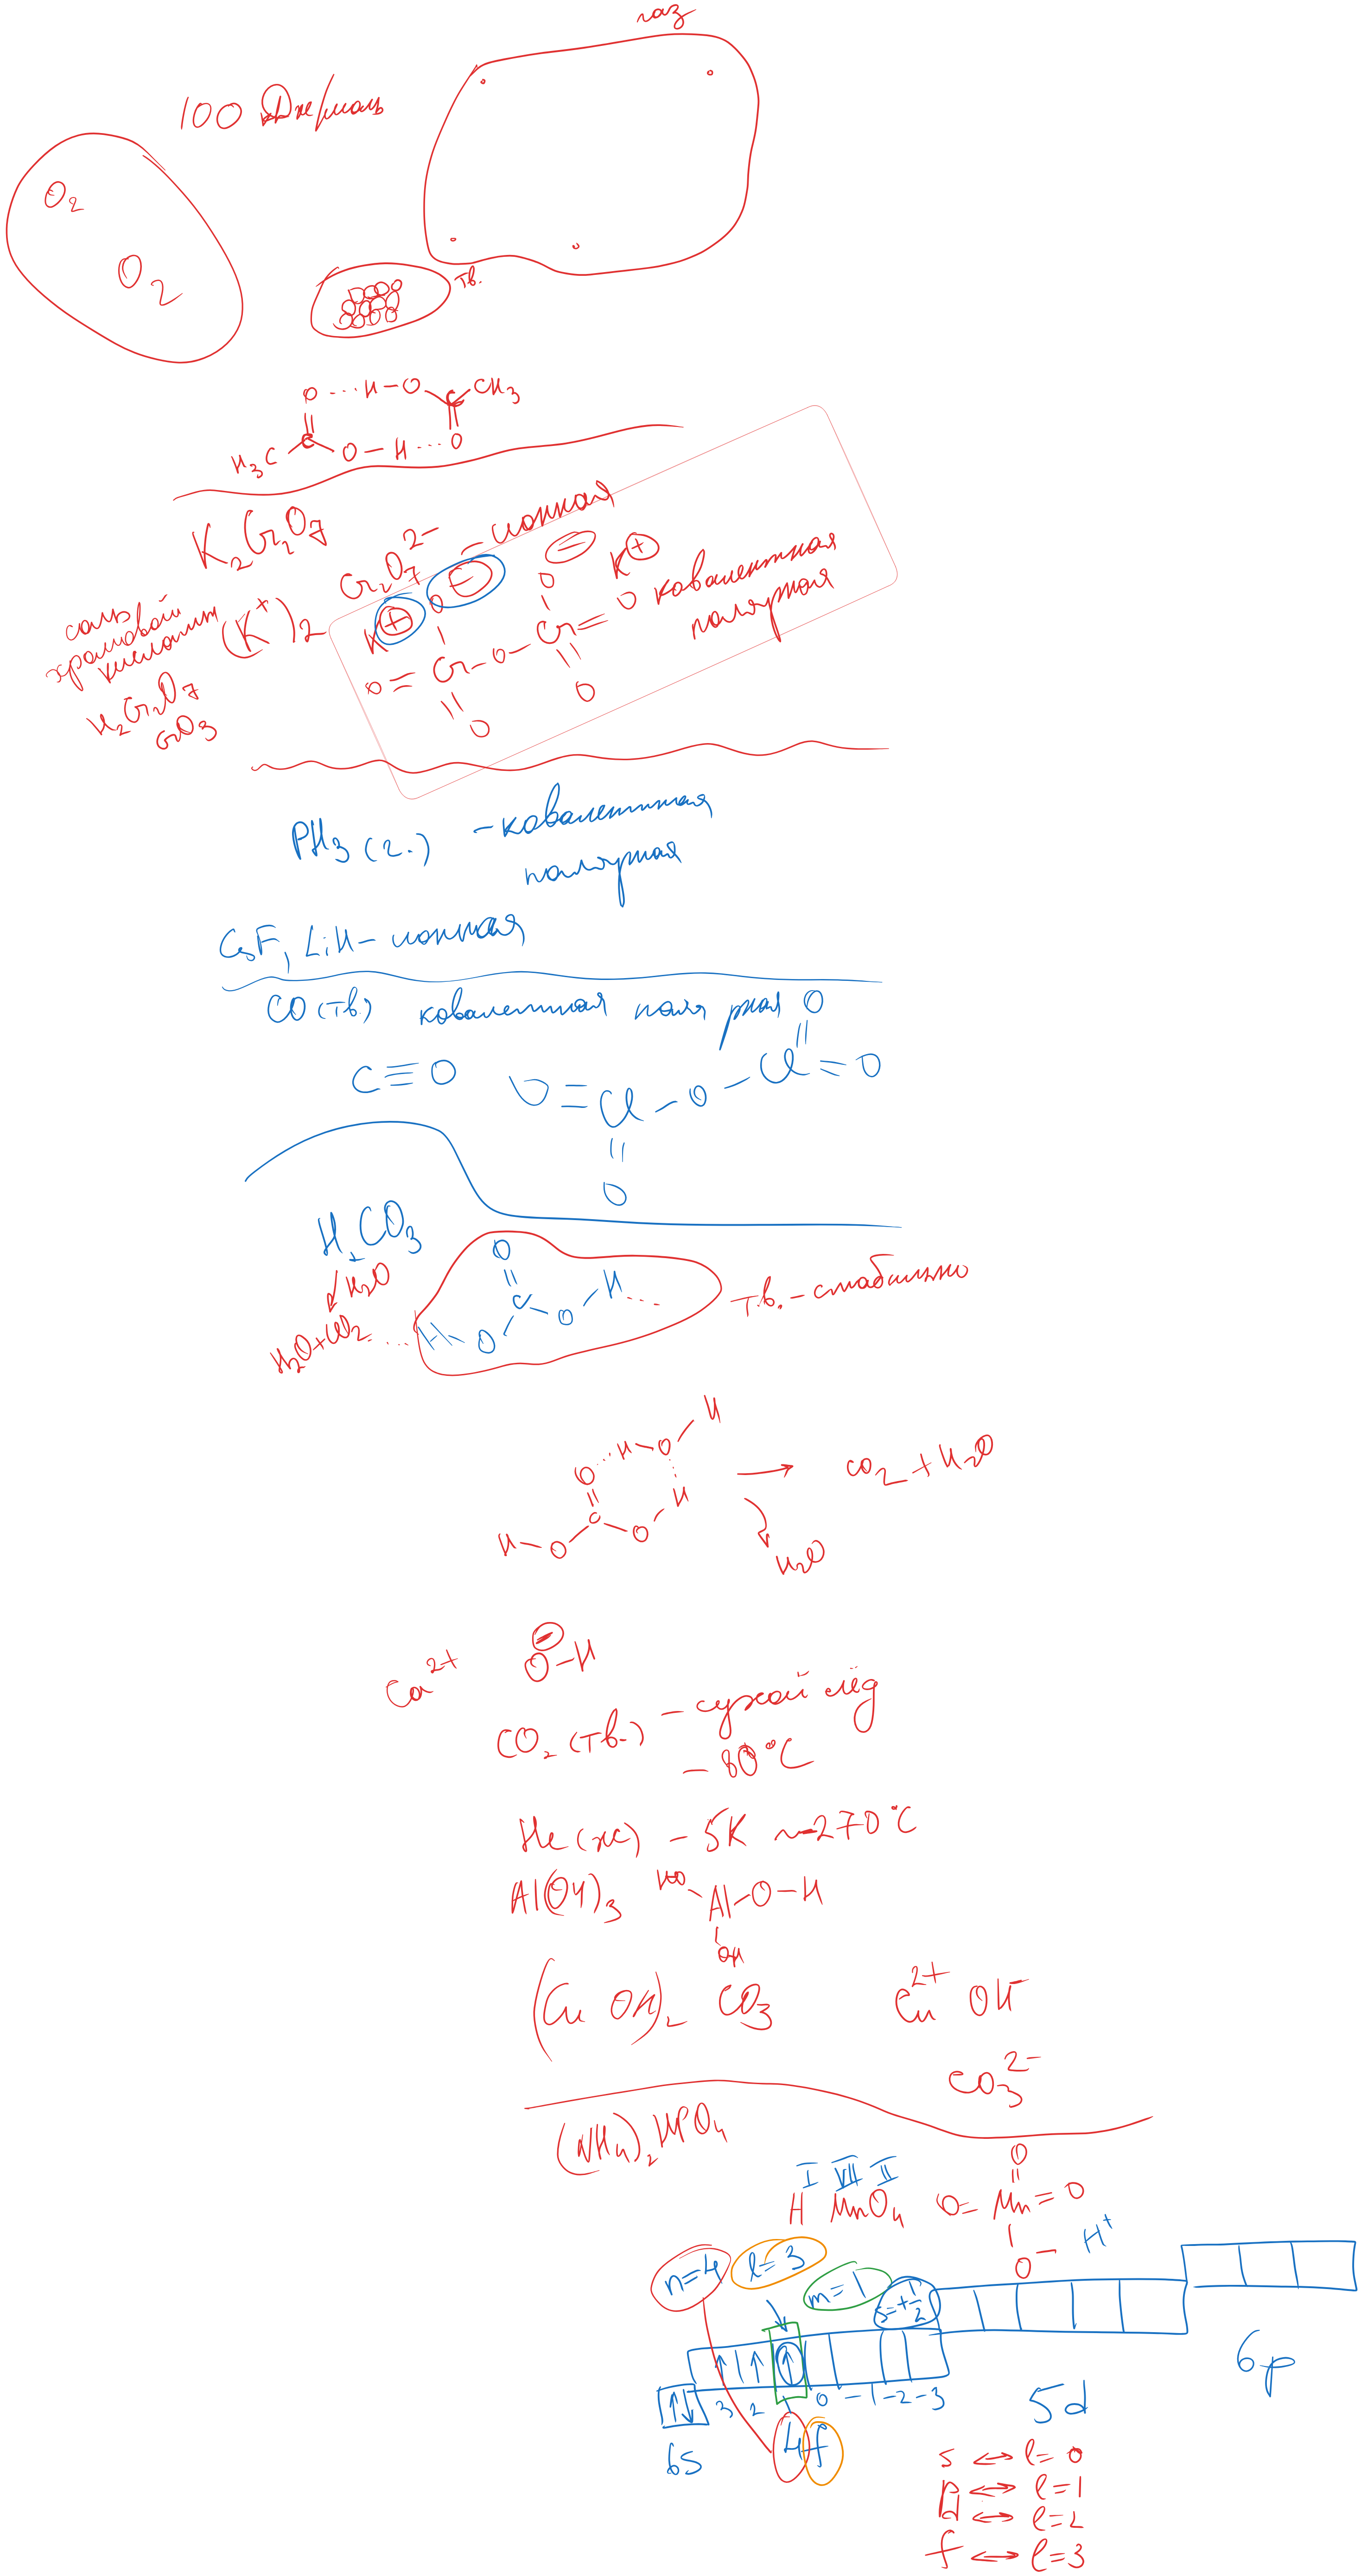 газ
100 кДж/моль
O2
O2
тв.
O ... H – O C CH3
H3C C O – H ... O
K2Cr2O7
(K+)2 Cr2O7 2− – ионная
соль хромовой кислоты
H2Cr2O7
CrO3
K+ O − O − K+
O = Cr – O – Cr = O
O O
ковалентная
полярная
PH3 (г.) – ковалентная
полярная
CsF, LiH – ионная
CO (тв) ковалентная полярная
C ≡ O
O
O = Cl – O – Cl = O
O
H2CO3
↓ H2O
H2O + CO2
O
C
H – O O – H ...
тв. – стабильно
H
O ... H – O
C H
H – O O
→ CO2 + H2O
H2O
Ca2+ O− – H
CO2 (тв.) – сухой лёд
– 80 °C
He (ж) – 5K ~ –270 °C
Al(OH)3 HO – Al – O – H
OH
(Cu OH)2 CO3 Cu2+ OH−
CO3 2−
(NH4)2HPO4
I VII II
H MnO4
O
O = Mn = O
O − H+
n=4 l=3 m=1 s=+1/2
3 2 1 0 –1 –2 –3
6s 4f 5d 6p
s ↔ l=0
p ↔ l=1
d ↔ l=2
f ↔ l=3